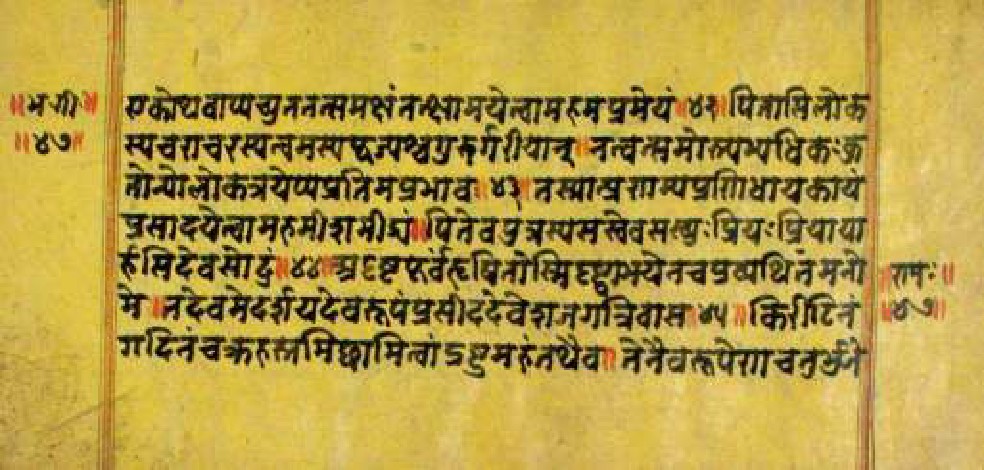 ॥भगी॥
॥४७॥
एकोथवाप्यच्युततत्समक्षंतत्क्षामयेत्वामहमप्रमेयं॥४२॥पितासिलोक
स्यचराचरस्यत्वमस्यपूज्यश्चगुरुर्गरीयान्॥नत्वत्समोस्त्यभ्यधिकःकु
तोन्योलोकत्रयेप्यप्रतिमप्रभाव॥४३॥तस्मात्प्रणम्यप्रणिधायकायं
प्रसादयेत्वामहमीशमीड्यं॥पितेवपुत्रस्यसखेवसख्युःप्रियःप्रियाया
र्हसिदेवसोढुं॥४४॥अदृष्टपूर्वंहृषितोस्मिदृष्ट्वाभयेनचप्रव्यथितंमनो
मे॥तदेवमेदर्शयदेवरूपंप्रसीददेवेशजगन्निवास॥४५॥किरीटिनं
गदिनंचक्रहस्तमिच्छामित्वांद्रष्टुमहंतथैव॥तेनैवरूपेणचतुर्भुजे
॥रामः॥
॥४७॥